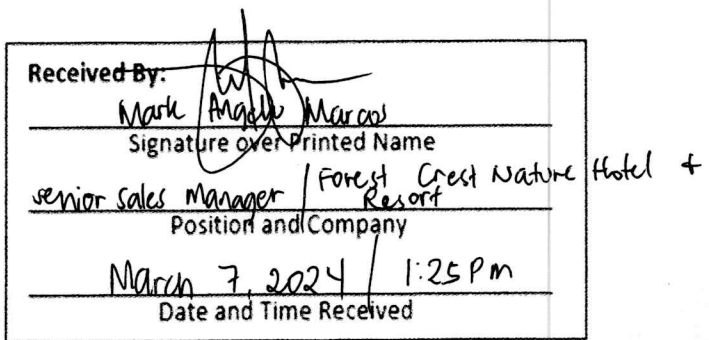 Received By:
Mark Angelo Marcos
Signature over Printed Name
senior Sales Manager / Forest Crest Nature Hotel &
Resort
Position and Company
March 7, 2024 / 1:25 Pm
Date and Time Received